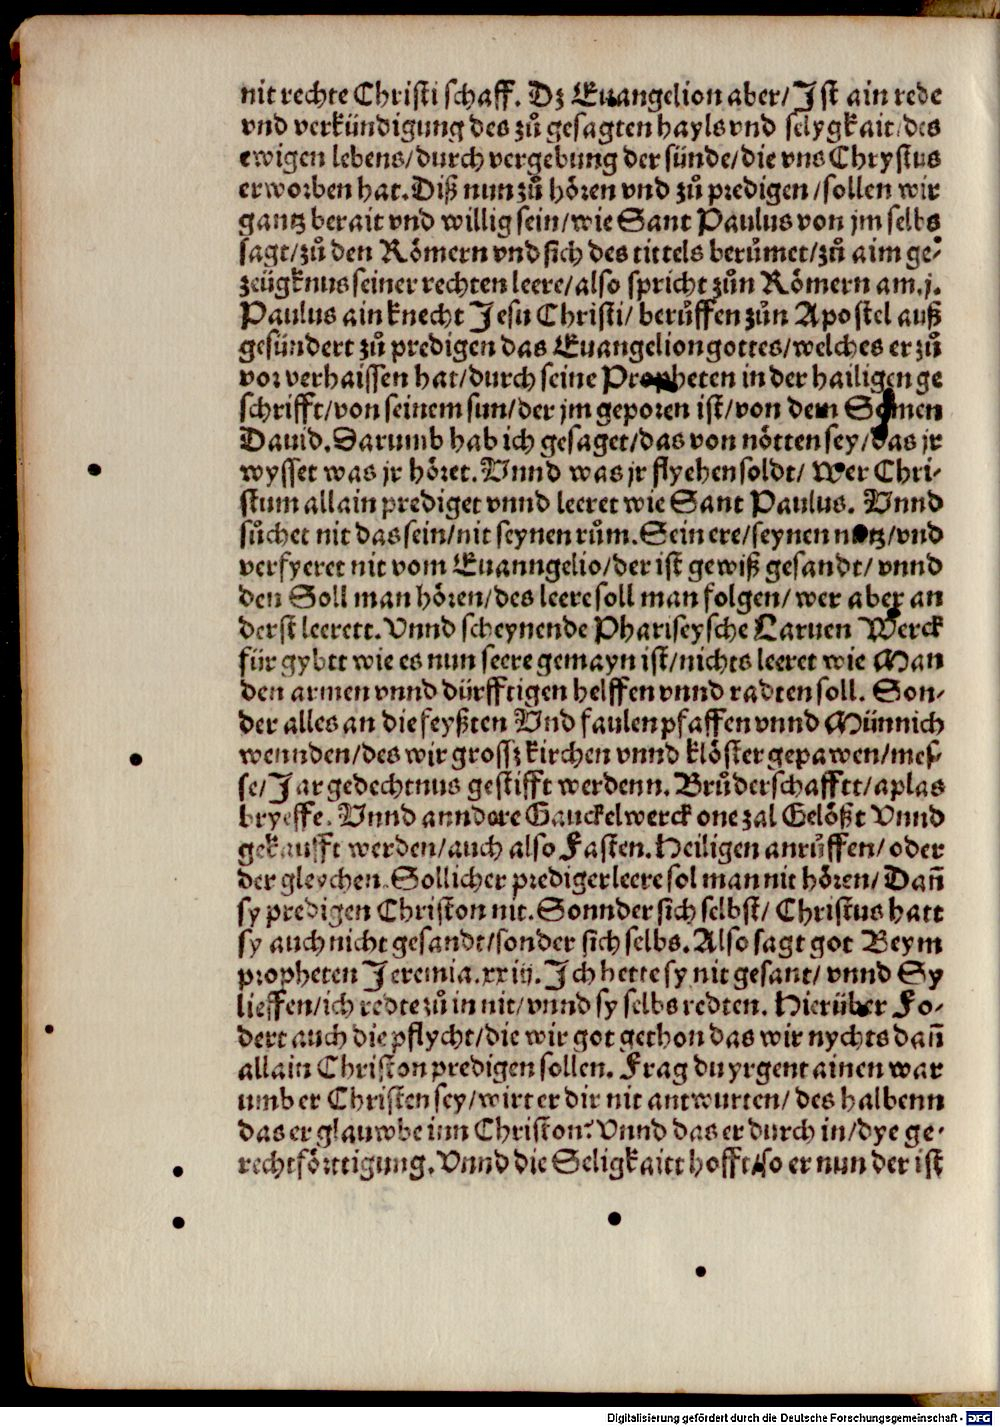 nit rechte Christi schaff. Dz Euangelion aber/ Ist ain rede
vnd verkündigung des zů gesagten hayls vnd selygkait/ des
ewigen lebens/ durch vergebung der sünde/ die vns Chrystus
erworben hat. Diß nun zů hören vnd zů predigen/ sollen wir
gantz berait vnd willig sein/ wie Sant Paulus von jm selbs
sagt/ zů den Römern vnd sich des tittels berůmet/ zů aim ge-
zeügknus seiner rechten leere/ also spricht zůn Römern am. j.
Paulus ain knecht Jesu Christi/ berůffen zůn Apostel auß
gesündert zů predigen das Euangelion gottes/ welches er zů
vor verhaissen hat/ durch seine Propheten in der hailigen ge
schrifft/ von seinem sun/ der jm geporen ist/ von dem Somen
Dauid. Darumb hab ich gesaget/ das von nötten sey/ das jr
wysset was jr höret. Vnnd was jr flyehen soldt/ Wer Chri-
stum allain prediget vnnd leeret wie Sant Paulus. Vnnd
sůchet nit das sein/ nit seynen rům. Sein ere/ seynen nutz/ vnd
verfyeret nit vom Euanngelio/ der ist gewiß gesandt/ vnnd
den Soll man hören/ des leere soll man folgen/ wer aber an
derst leerett. Vnnd scheynende Phariseysche Laruen Werck
für gybtt wie es nun seere gemayn ist/ nichts leeret wie Man
den armen vnnd dürfftigen helffen vnnd radten soll. Son-
der alles an die feyßten Vnd faulen pfaffen vnnd Münnich
wennden/ des wir grossz kirchen vnnd klöster gepawen/ mes-
se/ Jar gedechtnus gestifft werdenn. Brůderschafftt/ aplas
bryeffe. Vnnd anndere Gauckelwerck one zal Gelößt Vnnd
gekaufft werden/ auch also Fasten. Heiligen anrůffen/ oder
der gleychen. Sollicher prediger leere sol man nit hören/ Dañ
sy predigen Christon nit. Sonnder sich selbst/ Christus hatt
sy auch nicht gesandt/ sonder sich selbs. Also sagt got Beym
propheten Jeremia. xxiij. Ich hette sy nit gesant/ vnnd Sy
lieffen/ ich redte zů in nit/ vnnd sy selbs redten. Hierüber Fo-
dert auch die pflycht/ die wir got gethon das wir nychts dañ
allain Christon predigen sollen. Frag du yrgent ainen war
umb er Christen sey/ wirt er dir nit antwurten/ des halbenn
das er glauwbe inn Christon? Vnnd das er durch in/ dye ge-
rechtförttigung. Vnnd die Seligkaitt hofft/ so er nun der ist
Digitalisierung gefördert durch die Deutsche Forschungsgemeinschaft - DFG